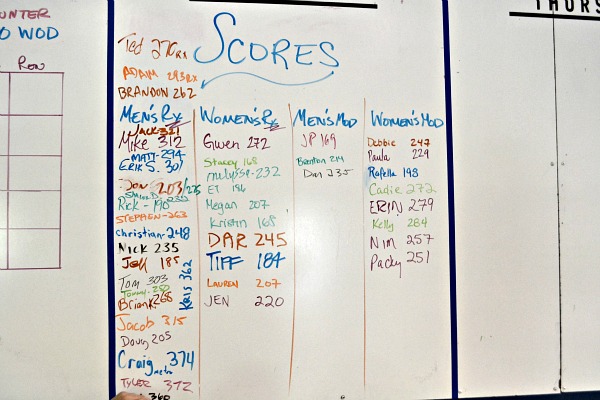 UNTER
O WOD
Row
THURS
SCORES
Ted 270 RX
ADAM 293RX
BRANDON 262
MEN'S RX
JACK-321
Mike 312
MATT-294
ERIK S. 301
Don 203/275
Rick-190
STEPHEN-263
Christian-248
NICK 235
Jeff 185
Kris 362
Tom 303
Tommy-250
Brian K. 268
Jacob 315
Doug 205
Craig 374
TYLER 372
360
WOMEN'S RX
Gwen 272
Stacey 168
melyssa-232
ET 186
Megan 207
Kristin 168
DAR 245
TIFF 184
LAUREN 207
JEN 220
MEN'S MOD
JP 169
Brenton 214
Dan 235
WOMEN'S MOD
Debbie 247
Paula 229
Rafella 198
Cadie 272
ERIN 279
Kelly 284
Nim 257
Packy 251